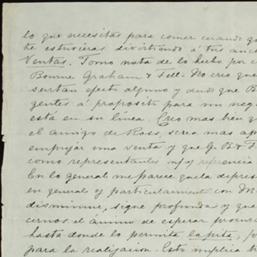 lo que necesitas para comer cuando qu
he estuvieras divirtiendo á tus anc
Ventas. Tomo nota de lo hecho por c
Bonne Graham & Fell. No creo que
surtan efecto alguno y dudo que B
gentes á propósito para un neg
está en su linea. Creo mas bien q
el amigo de Ross, sera mas ap
empujar una venta y que G. B. y F.
como representantes n/s y referencia
En lo general me parece que la depres
en general y particularmente con M
disminuye, sigue profunda y que
cernos el ánimo de esperar
hasta donde lo permita la pita,
para la realizacion. Esto implica